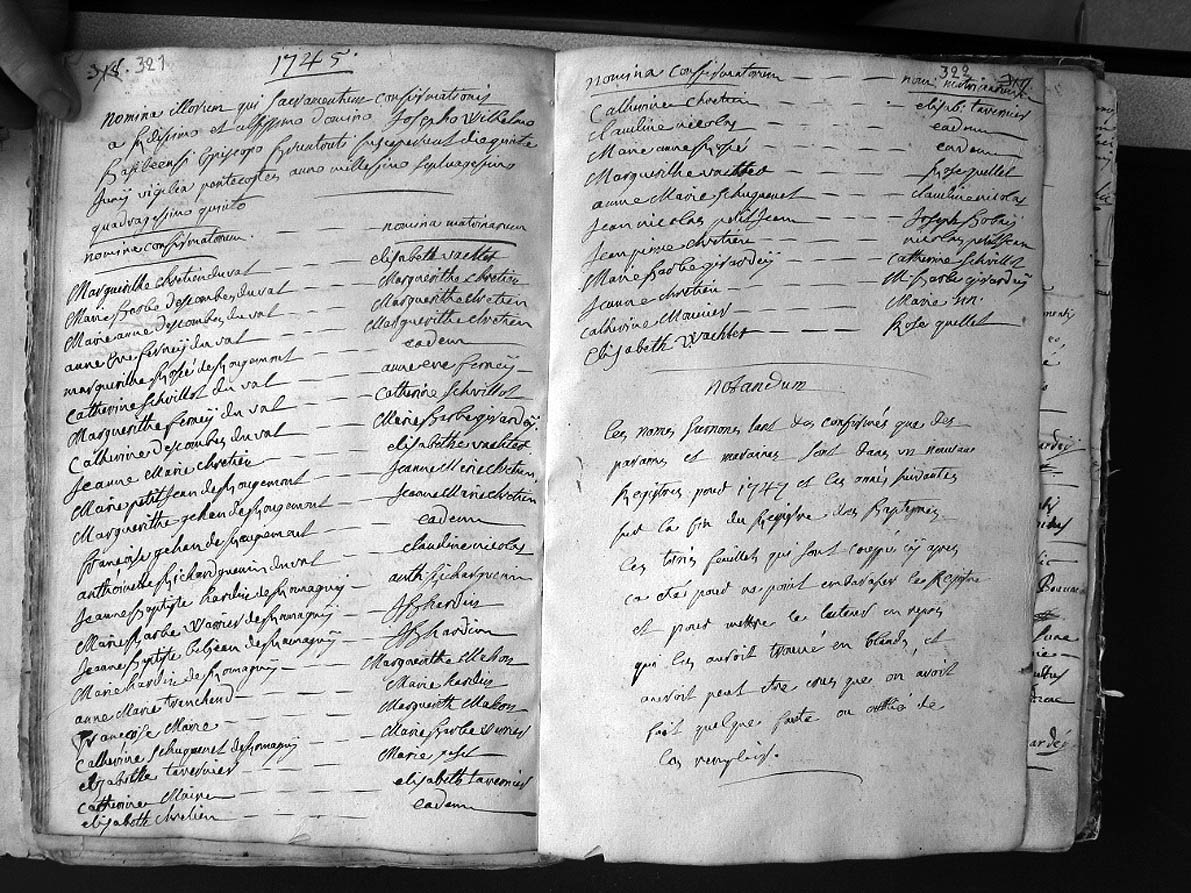 321
1745.
nomina illorum qui sacramentum confirmationis
a Rdissimo et Cellsissimo domino Josepho Wilhelmo
Basileensi Episcopo susceperunt die quinta
Junij vigilia pentecostes anno millesimo septuagessimo
quadragessimo quinto
nomina confirmatorum. nomina matrinarum
Marguerithe chretien du val — elisabeth vachter
Marie Barbe descombes du val — Marguerithe chretien
Marie anne descombes du val — Marguerithe chretien
anne Eve ferreij du val — Marguerithe chretien
marguerithe Rosé de Rougemont — eadem
Catherine schvillot du val — anne eve ferreij
Marguerithe ferreij du val — Catherine schvillot
Catherine descombes du val — Marie Barbe girardeij.
Jeanne Marie chretien — elisabethe vachter
Marie petit Jean de Rougemont — Jeanne Marie chretien
Marguerithe gehan de Rougement — Jeanne Marie chretien
françoise gehan de Rougemont — eadem
anthoinette Richard guenin du val — claudine nicolas
Jeanne Baptiste hardie de Romagnij — anth Richarguenin
Marie Barbe Varrier de Romagnij — JB hardie
Jeanne Baptiste beljean de Romagnij — JB hardien
Marie hardie de Romagnij — Marguerithe Mahon
anne Marie trenchend — Marie hardie
françoise Maire — Marguerith Mahon
Catherine schuguenet de Romagnij — Marie Barbe verrier
elisabethe tavernier — Marie
catherine Maire — elisabeth tavernier
elisabeth chretien — eadem
322
nomina confirmatorum — nom matrinarum
Catherine chretien — elisab. tavernier
claudine nicolas — eadem
Marie anne Rosé — eadem
Marguerithe vachter — Rose quellet
anne Marie schuguenet — claudine nicolas
Jean nicolas petit Jean — Joseph
Jean pierre chretien — nicolas petit Jean
Marie Barbe girardeij — catherine schvillot
Jeanne chretien — M. Barbe girardeij
catherine Mounier — Marie
Elisabeth Wachter — Rose quellet
notandum
les noms surnoms tant des confirmés que des
parains et maraines sont dans un nouveau
Registres pour 1747 et les année suivantes
sur la fin du Registre des Baptemes
les trois feuillets qui sont couppé cij apres
ca eté pour ne point embarasser le Registre
et pour mettre le lecteur en repos
qui les auroit trouvé en blands, et
auroit peut etre crus que on avoit
fait quelque faute ou oublié de
les remplir.